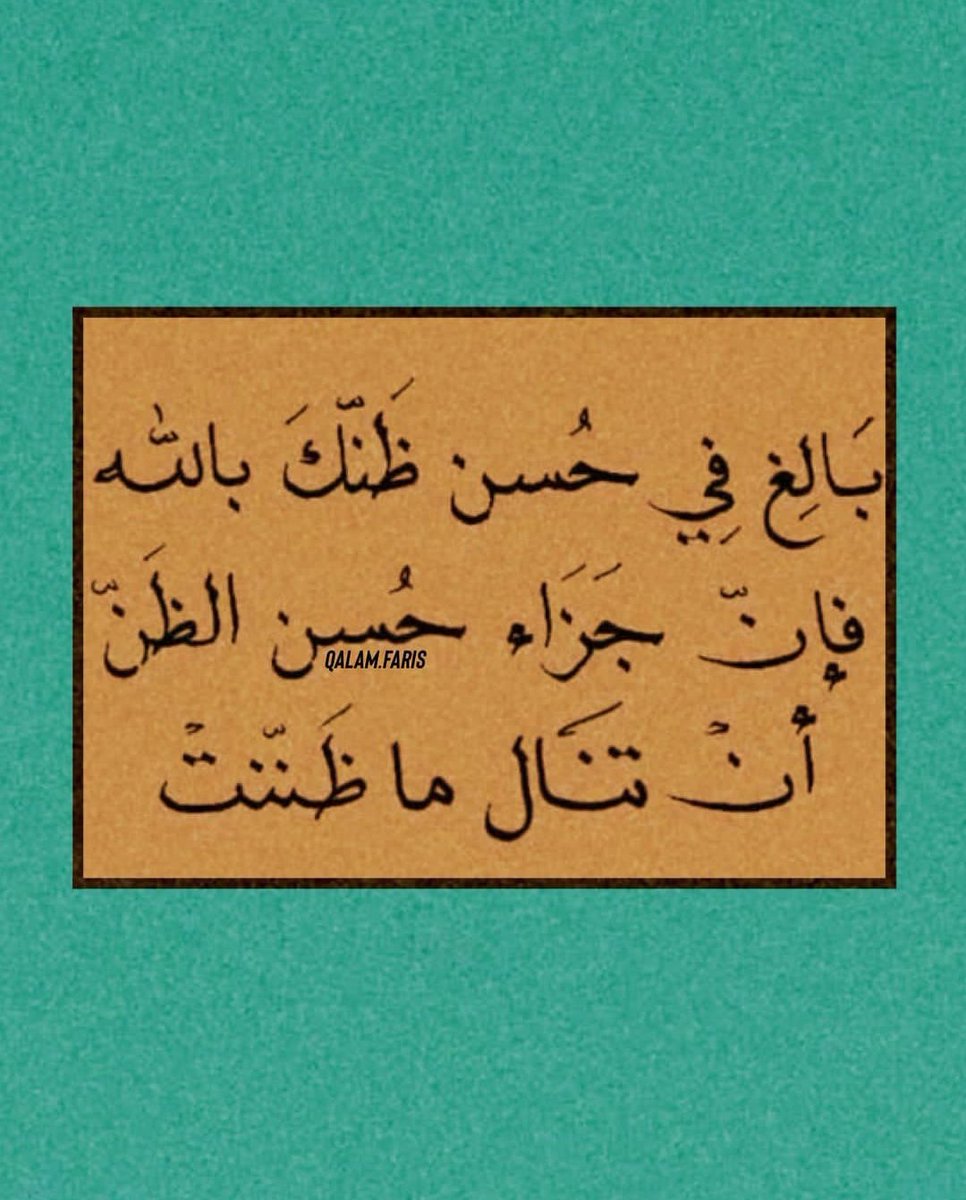 بَالِغ فِي حُسن ظَنّكَ بالله
فإنّ جَزَاء حُسن الظَنّ
QALAM.FARIS
أنْ تنَال ما ظَنّنتْ